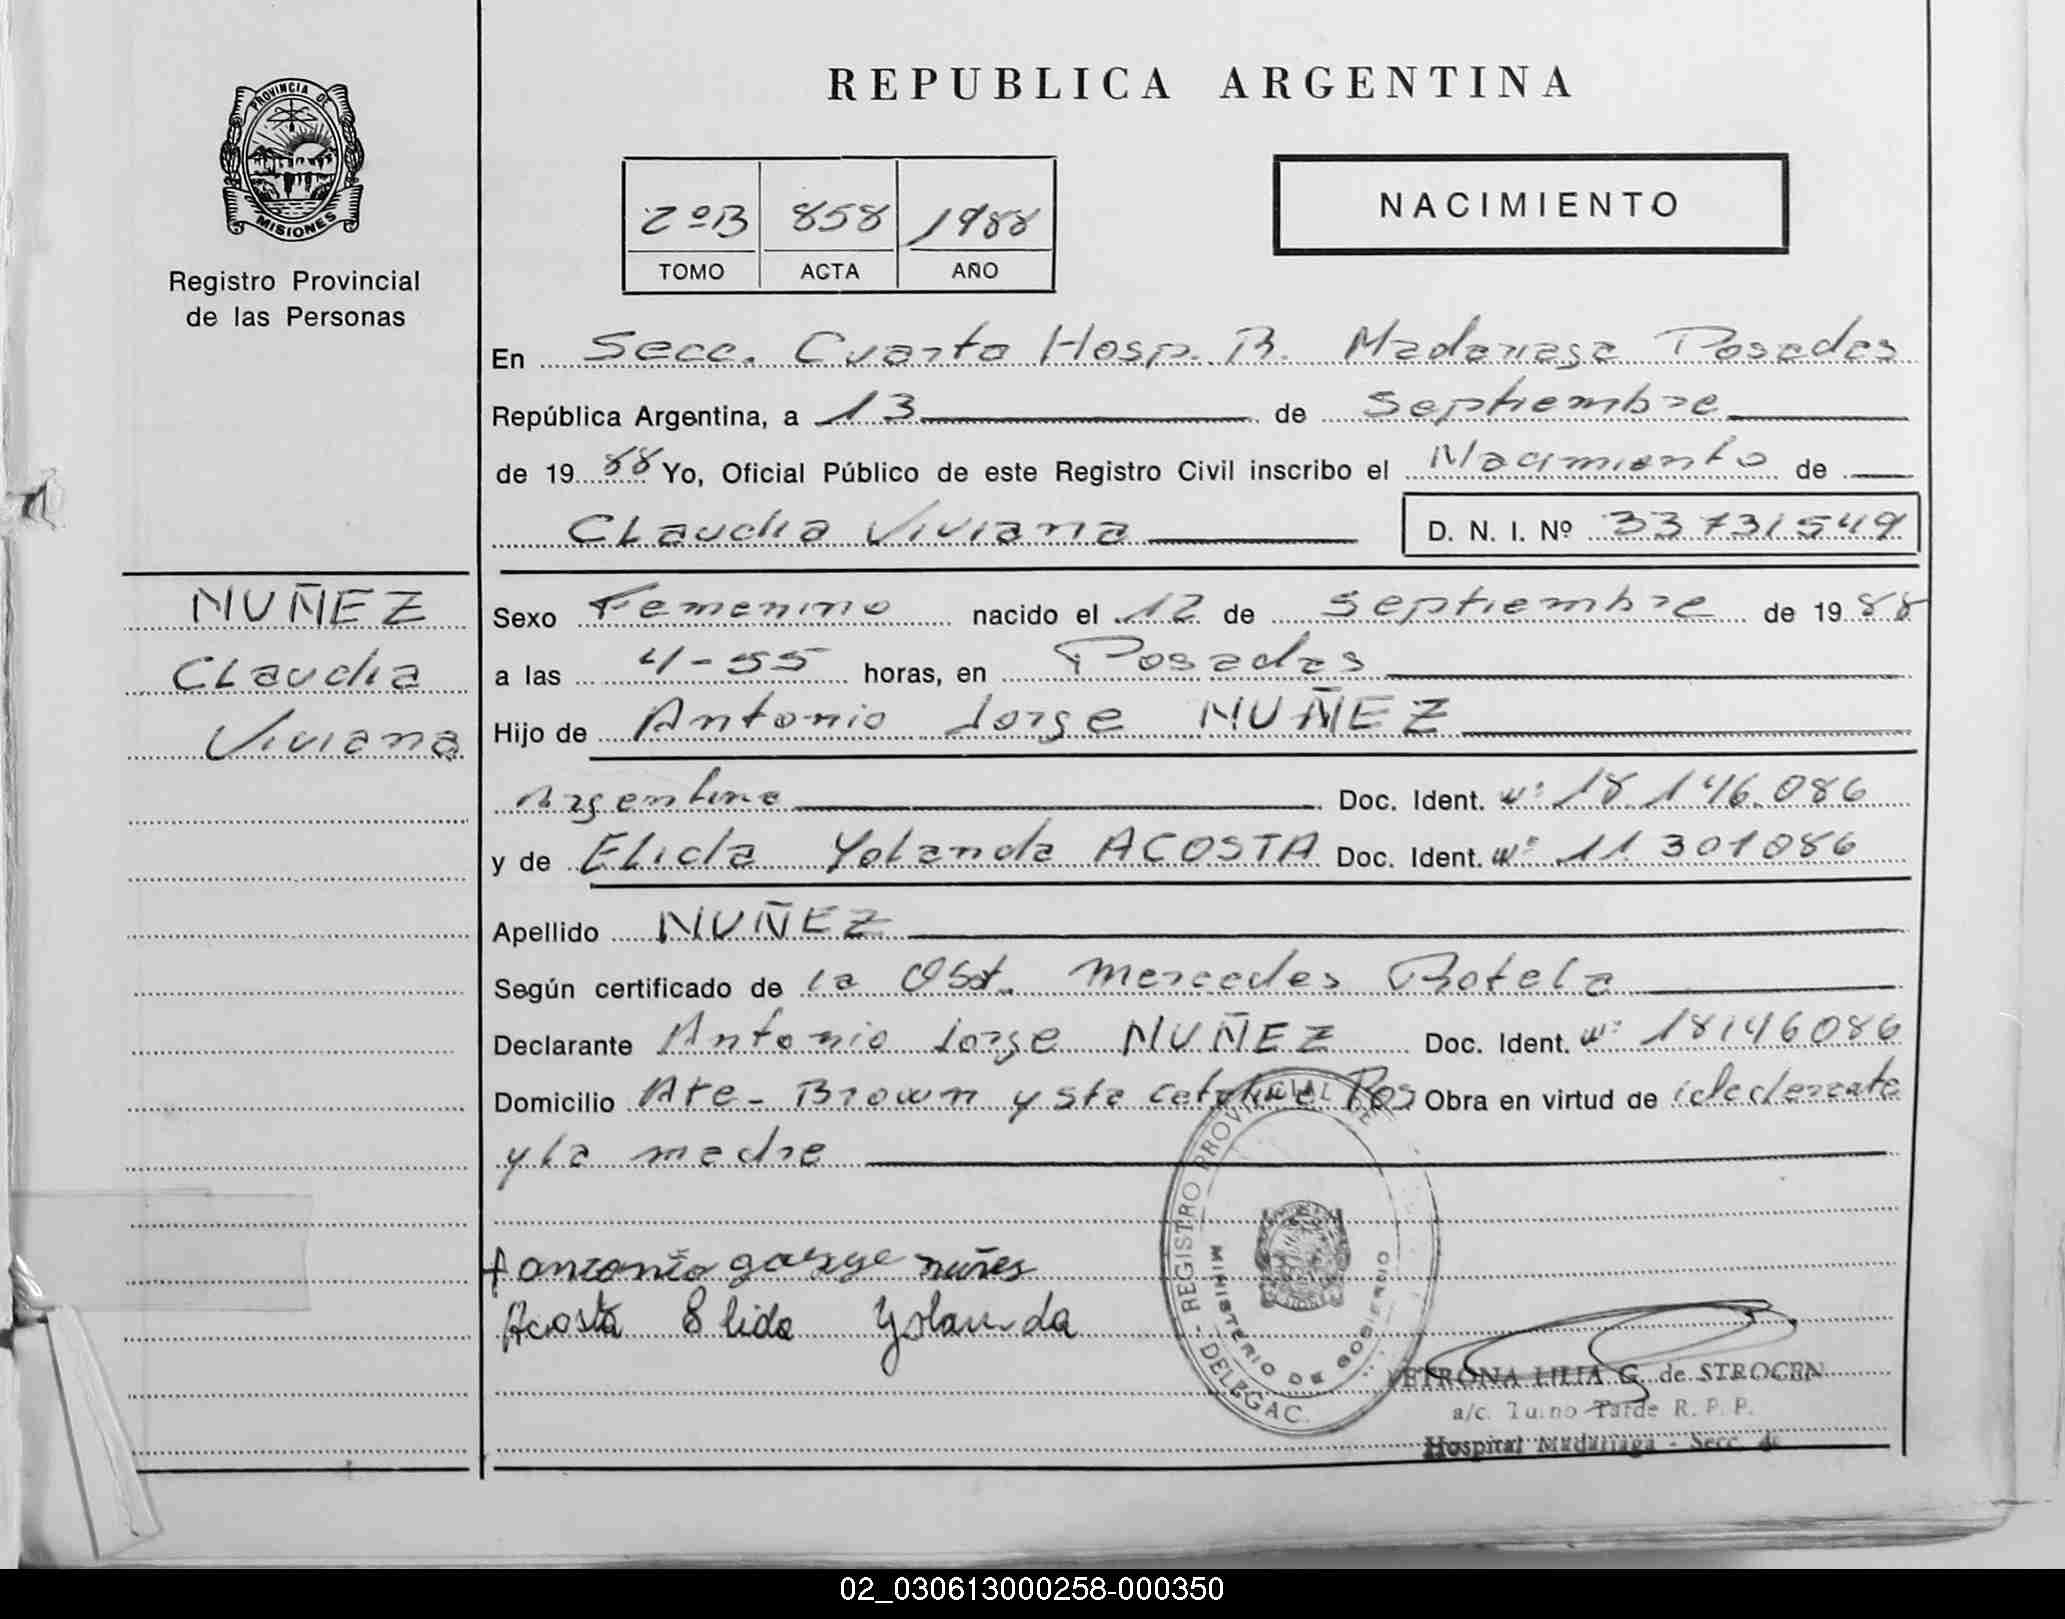 PROVINCIA DE
MISIONES
Registro Provincial
de las Personas
NUÑEZ
CLaudia
Viviana
REPUBLICA ARGENTINA
2ºB 858 1988
TOMO ACTA AÑO
NACIMIENTO
En Secc. Cuarta Hosp. R. Madariaga Posadas
República Argentina, a 13 de Septiembre
de 1988 Yo, Oficial Público de este Registro Civil inscribo el Nacimiento de
CLaudia Viviana D. N. I. Nº 33731549
Sexo Femenino nacido el 12 de Septiembre de 1988
a las 4-55 horas, en Posadas
Hijo de Antonio Jorge NUÑEZ
Argentina Doc. Ident. Nº 18.146.086
y de ELida Yolanda ACOSTA Doc. Ident. Nº 11.301086
Apellido NUÑEZ
Según certificado de la Obst. Mercedes Botela
Declarante Antonio Jorge NUÑEZ Doc. Ident. Nº 18146086
Domicilio Ate- Brown y sta catalina Pos Obra en virtud de
y la madre
antonio gorge nuñes
Acosta Elida Yolanda
REGISTRO PROVINCIAL
DELEGAC.
MINISTERIO DE GOBIERNO
PETRONA LILIA G. de STROCEN
a/c. Turno Tarde R. P. P.
Hospital Madariaga - Secc. 4
02_030613000258-000350